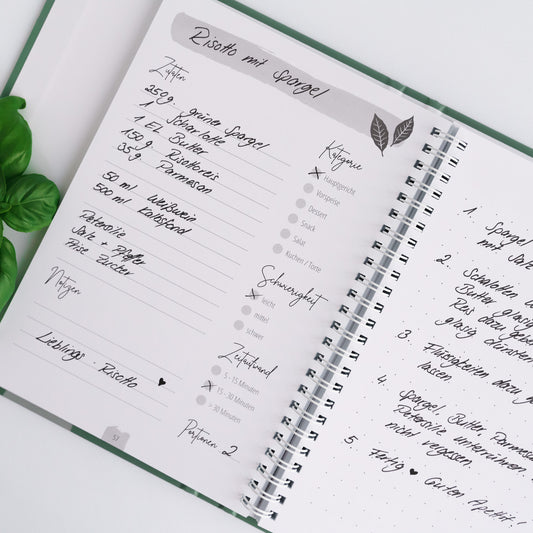 Risotto mit Spargel
Zutaten
250g grüner Spargel
1 Schalotte
1 EL Butter
150g Risottoreis
35g Parmesan
50 ml Weißwein
500 ml Kalbsfond
Petersilie
Salz + Pfeffer
Prise Zucker
Notizen
Lieblings-Risotto
Kategorie
Hauptgericht
Vorspeise
Dessert
Snack
Salat
Kuchen / Torte
Schwierigkeit
leicht
mittel
schwer
Zeitaufwand
5 - 15 Minuten
15 - 30 Minuten
> 30 Minuten
Portionen 2
51
1. Spargel
mit Salz
2. Schalotten
Butter glasig
Reis dazu geben
glasig dünsten
3. Flüssigkeiten dazu
lassen
4. Spargel, Butter, Parmesan
Petersilie unterrühren.
nicht vergessen.
5. Fertig ♥ Guten Appetit!